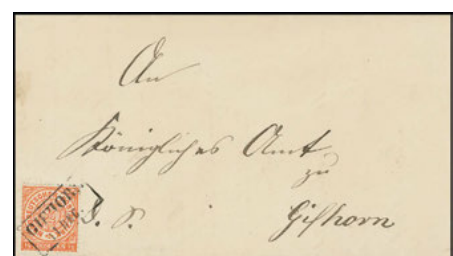 An
Königliches Amt
zu
Gifhorn
GIFHOR